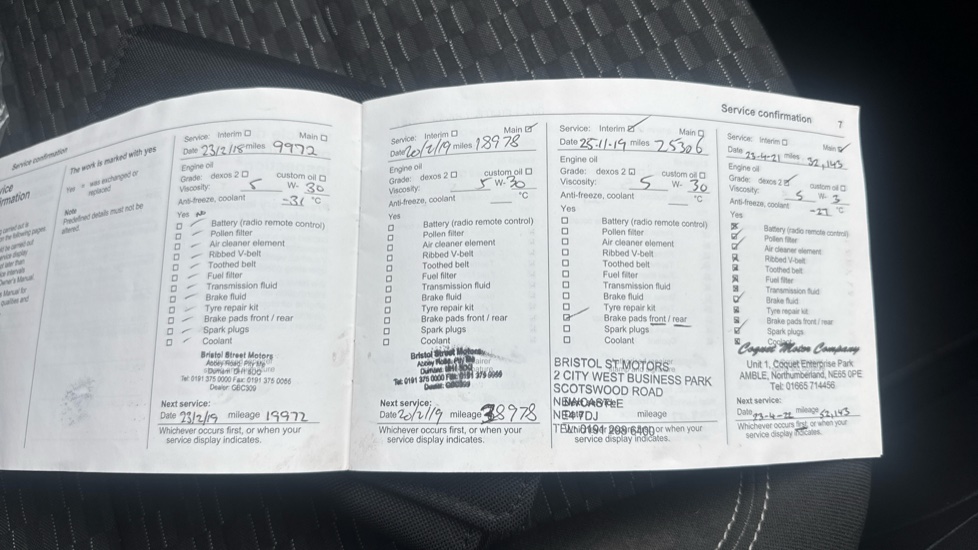 Service confirmation
The work is marked with yes
Yes = was exchanged or
replaced
Note
Predefined details must not be
altered.
Service: Interim ☐ Main ☐
Date 23/2/18 miles 9972
Engine oil
Grade: dexos 2 ☐ custom oil ☐
Viscosity: 5 W- 30
Anti-freeze, coolant -31 °C
Yes No
Battery (radio remote control)
Pollen filter
Air cleaner element
Ribbed V-belt
Toothed belt
Fuel filter
Transmission fluid
Brake fluid
Tyre repair kit
Brake pads front / rear
Spark plugs
Coolant
Bristol Street Motors
Tel: 0191 375 0000 Fax: 0191 375 0066
Next service:
Date 23/2/19 mileage 19972
Whichever occurs first, or when your
service display indicates.
Service: Interim ☐ Main ☑
Date 20/2/19 miles 18978
Engine oil
Grade: dexos 2 ☐ custom oil ☐
Viscosity: 5 W- 30
Anti-freeze, coolant °C
Yes
Battery (radio remote control)
Pollen filter
Air cleaner element
Ribbed V-belt
Toothed belt
Fuel filter
Transmission fluid
Brake fluid
Tyre repair kit
Brake pads front / rear
Spark plugs
Coolant
Bristol Street Motors
Next service:
Date 20/2/19 mileage 38978
Whichever occurs first, or when your
service display indicates.
Service: Interim ☑ Main ☐
Date 25-11-19 miles 25306
Engine oil
Grade: dexos 2 ☐ custom oil ☐
Viscosity: 5 W- 30
Anti-freeze, coolant °C
Yes
Battery (radio remote control)
Pollen filter
Air cleaner element
Ribbed V-belt
Toothed belt
Fuel filter
Transmission fluid
Brake fluid
Tyre repair kit
Brake pads front / rear
Spark plugs
Coolant
BRISTOL ST MOTORS
2 CITY WEST BUSINESS PARK
SCOTSWOOD ROAD
NEWCASTLE
NE4 7DJ mileage
TEL: 0191 298 6400 or when your
service display indicates.
Service confirmation 7
Service: Interim ☐ Main ☑
Date 23-4-21 miles 32,143
Engine oil
Grade: dexos 2 ☑ custom oil ☐
Viscosity: 5 W- 3
Anti-freeze, coolant °C
Yes
Battery (radio remote control)
Pollen filter
Air cleaner element
Ribbed V-belt
Toothed belt
Fuel filter
Transmission fluid
Brake fluid
Tyre repair kit
Brake pads front / rear
Spark plugs
Coquet Motor Company
Unit 1, Coquet Enterprise Park
AMBLE, Northumberland, NE65 0PE
Tel: 01665 714456
Next service:
Date 23-4-22 mileage 52,143
Whichever occurs first, or when your
service display indicates.